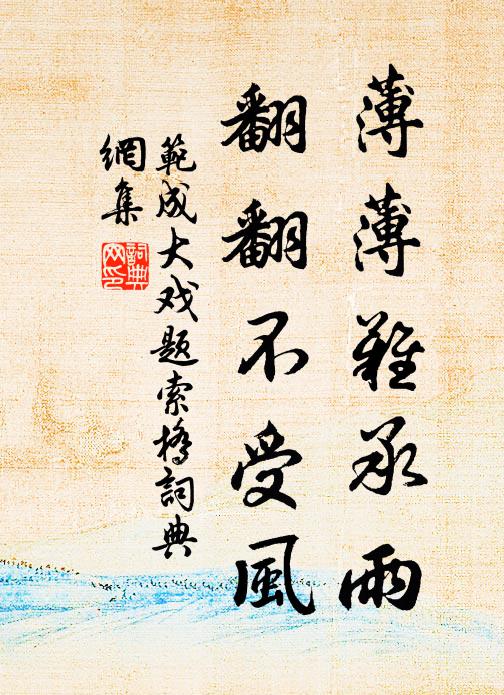 薄薄難承雨
翻翻不受風
範成大戏题索橋詞典
網集
詞典
网印